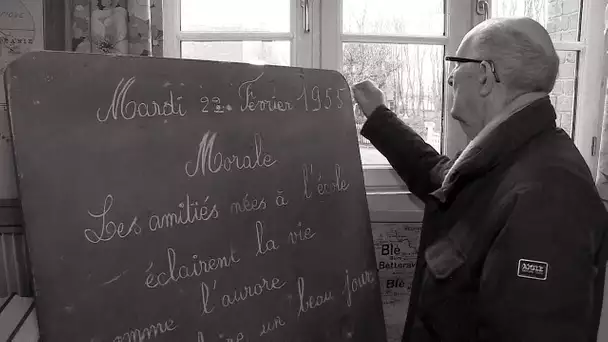 Mardi 22 Février 1955
Morale
Les amitiés nées à l'école
éclairent la vie
comme l'aurore
un beau jour
Blé
Betterave
Blé